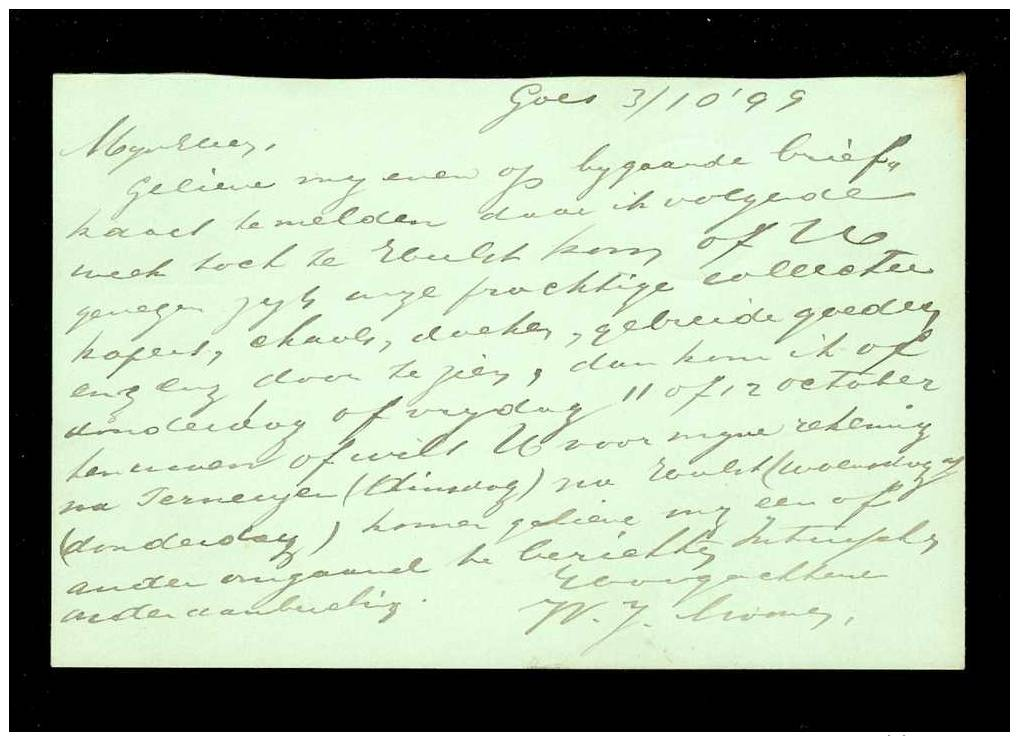 Goes 3/10'99
Mijnheer,
Gelieve my even op bygaande brief„
kaart te melden daar ik volgende
week toch te Hulst kom of U
genegen zyt onze prachtige collectie
kapers, chaols, doeken, gebreide goederen
enz enz door te zien, dan kom ik of
donderdag of vrydag 11 of 12 october
ten uwen of wilt U voor myne rekening
na Terneuzen (Dinsdag) na Hulst (woensdag of
(donderdag) komen gelieve my een of
ander omgaand te berichten
onder aanbieding.
Hoogachtend
W. J.